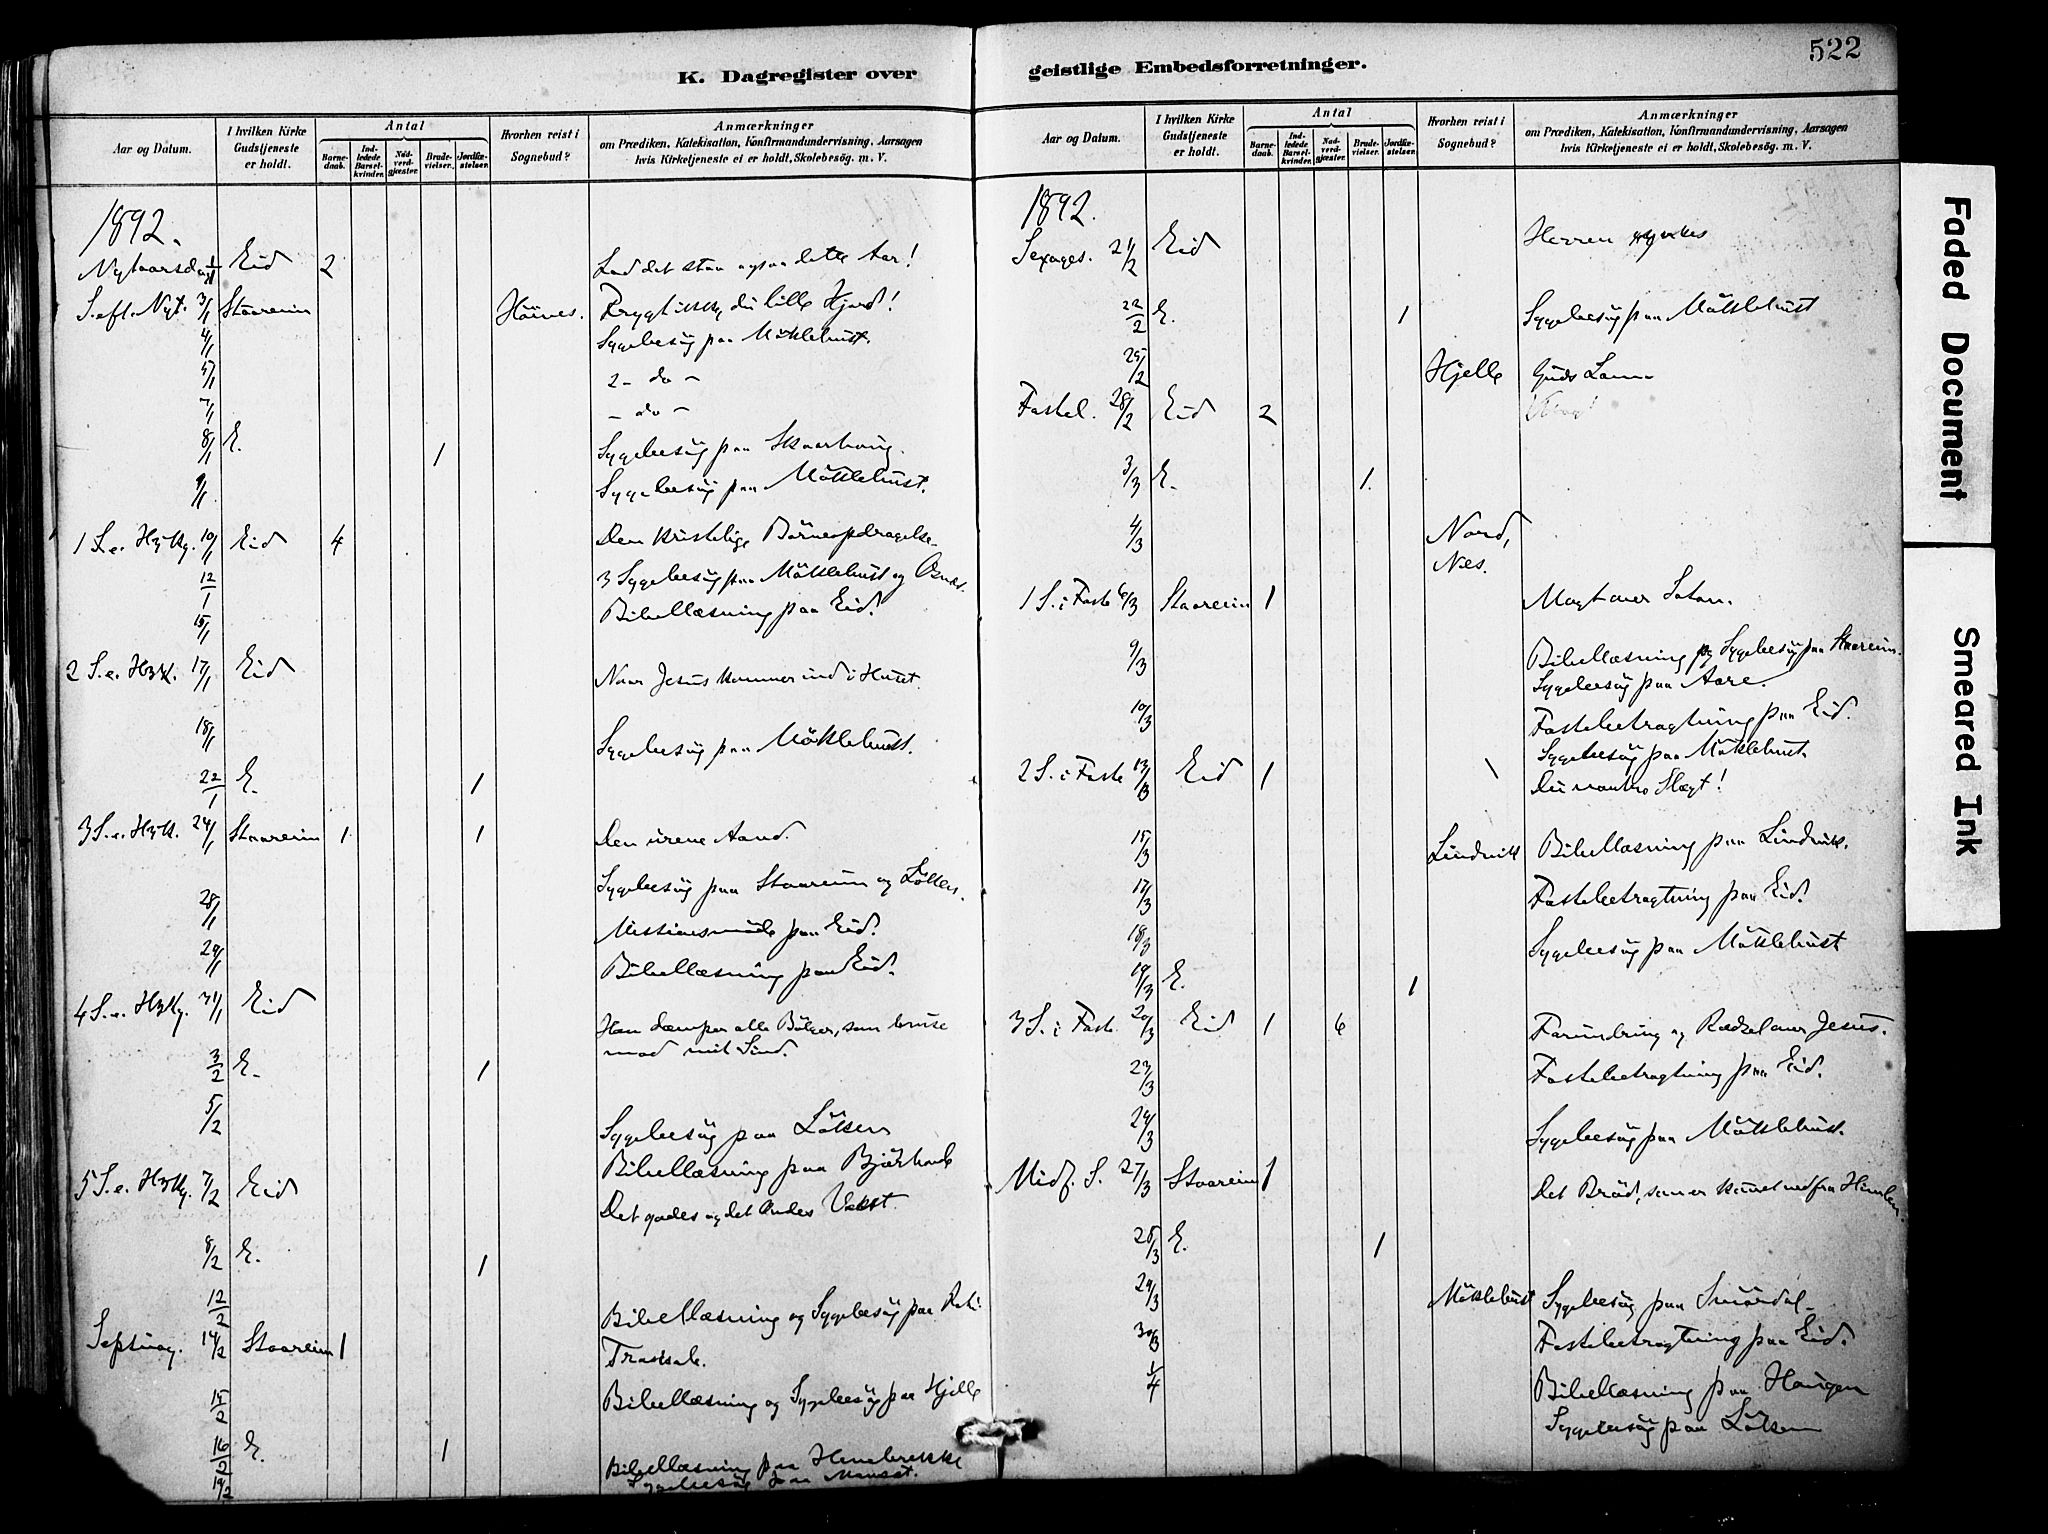 522
K. Dagregister over geistlige Embedsforretninger.
Aar og Datum.
I hvilken Kirke Gudstjeneste er holdt.
Antal
Barne-daab.
Ind-ledede Barsel-kvinder.
Nad-verd-gjæster.
Brude-vielser.
Jordfæ-stelser.
Hvorhen reist i Sognebud?
Anmærkninger
om Prædiken, Katekisation, Konfirmandundervisning, Aarsagen
hvis Kirketjeneste ei er holdt, Skolebesög. m. V.
1892.
Nytaarsdag 1/1 Eid 2 Lad det staa ogsaa dette Aar!
S. eft. Nyt. 3/1 Staareim Frygt ikke, du lille Hjord!
4/1 Sygebesög paa Möklebust.
5/1 2 - do -
7/1 - do -
8/1 E. 1 Sygebesög paa Skaarhaug.
9/1 Sygebesög paa Möklebust.
1 S. e. H3K. 10/1 Eid 4 Den kristelige Börneopdragelse.
12/1 3 Sygebesög paa Möklebust og Osnes.
15/1 Bibellæsning paa Eid.
2 S. e. H3K. 17/1 Eid Naar Jesus kommer ind i Huset.
18/1 Sygebesög paa Möklebust.
22/1 E. 1
3 S. e. H3K. 24/1 Staareim 1 1 Den urene Aand.
Sygebesög paa Staareim og Löken.
28/1 Missionsmöde paa Eid.
29/1 Bibellæsning paa Eid.
4 S. e. H3K. 31/1 Eid Han dæmper alle Bölger, som bruse
mod mit Sind.
3/2 E. 1
5/2 Sygebesög paa Löken
Bibellæsning paa
5 S. e. H3K. 7/2 Eid Det godes og det Ondes Vekst.
8/2 E. 1
12/2 Bibellæsning og Sygebesög paa
Septuag. 14/2 Staareim 1 Troskab.
15/2 Bibellæsning og Sygebesög paa Hjelle
16/2 E. 1 Bibellæsning paa
19/2 Sygebesög paa
Aar og Datum.
I hvilken Kirke Gudstjeneste er holdt.
Antal
Barne-daab.
Ind-ledede Barsel-kvinder.
Nad-verd-gjæster.
Brude-vielser.
Jordfæ-stelser.
Hvorhen reist i Sognebud?
Anmærkninger
om Prædiken, Katekisation, Konfirmandundervisning, Aarsagen
hvis Kirketjeneste ei er holdt, Skolebesög. m. V.
1892.
Sexages. 21/2 Eid Herren
22/2 E. 1 Sygebesög paa Möklebust
25/2 Hjelle Guds Lam
Fastel. 28/2 Eid 2
3/3 E. 1.
4/3 Nord,
Nes.
1 S. i Faste 6/3 Staareim 1 Magt over Satan.
9/3 Bibellæsning og Sygebesög paa Staareim.
Sygebesög paa Aare.
10/3 Fastebetragtning paa Eid.
Sygebesög paa Möklebust.
2 S. i Faste 13/3 Eid 1 Du vantro Slægt!
15/3 Lindvik Bibellæsning paa Lindvik.
17/3 Fastebetragtning paa Eid.
18/3 Sygebesög paa Möklebust
19/3 E. 1
3 S. i Faste 20/3 Eid 1 6 Forundring og Rædsel over Jesus.
23/3 Fastebetragtning paa Eid.
24/3 Sygebesög paa Möklebust.
Midf. S. 27/3 Staareim 1 Det Bröd, som er kommet ned fra Himlen.
28/3 E. 1
29/3 Möklebust Sygebesög paa Smördal
30/3 Fastebetragtning paa Eid.
1/4 Bibellæsning paa Haugen
Sygebesög paa Löken
Faded Document
Smeared Ink